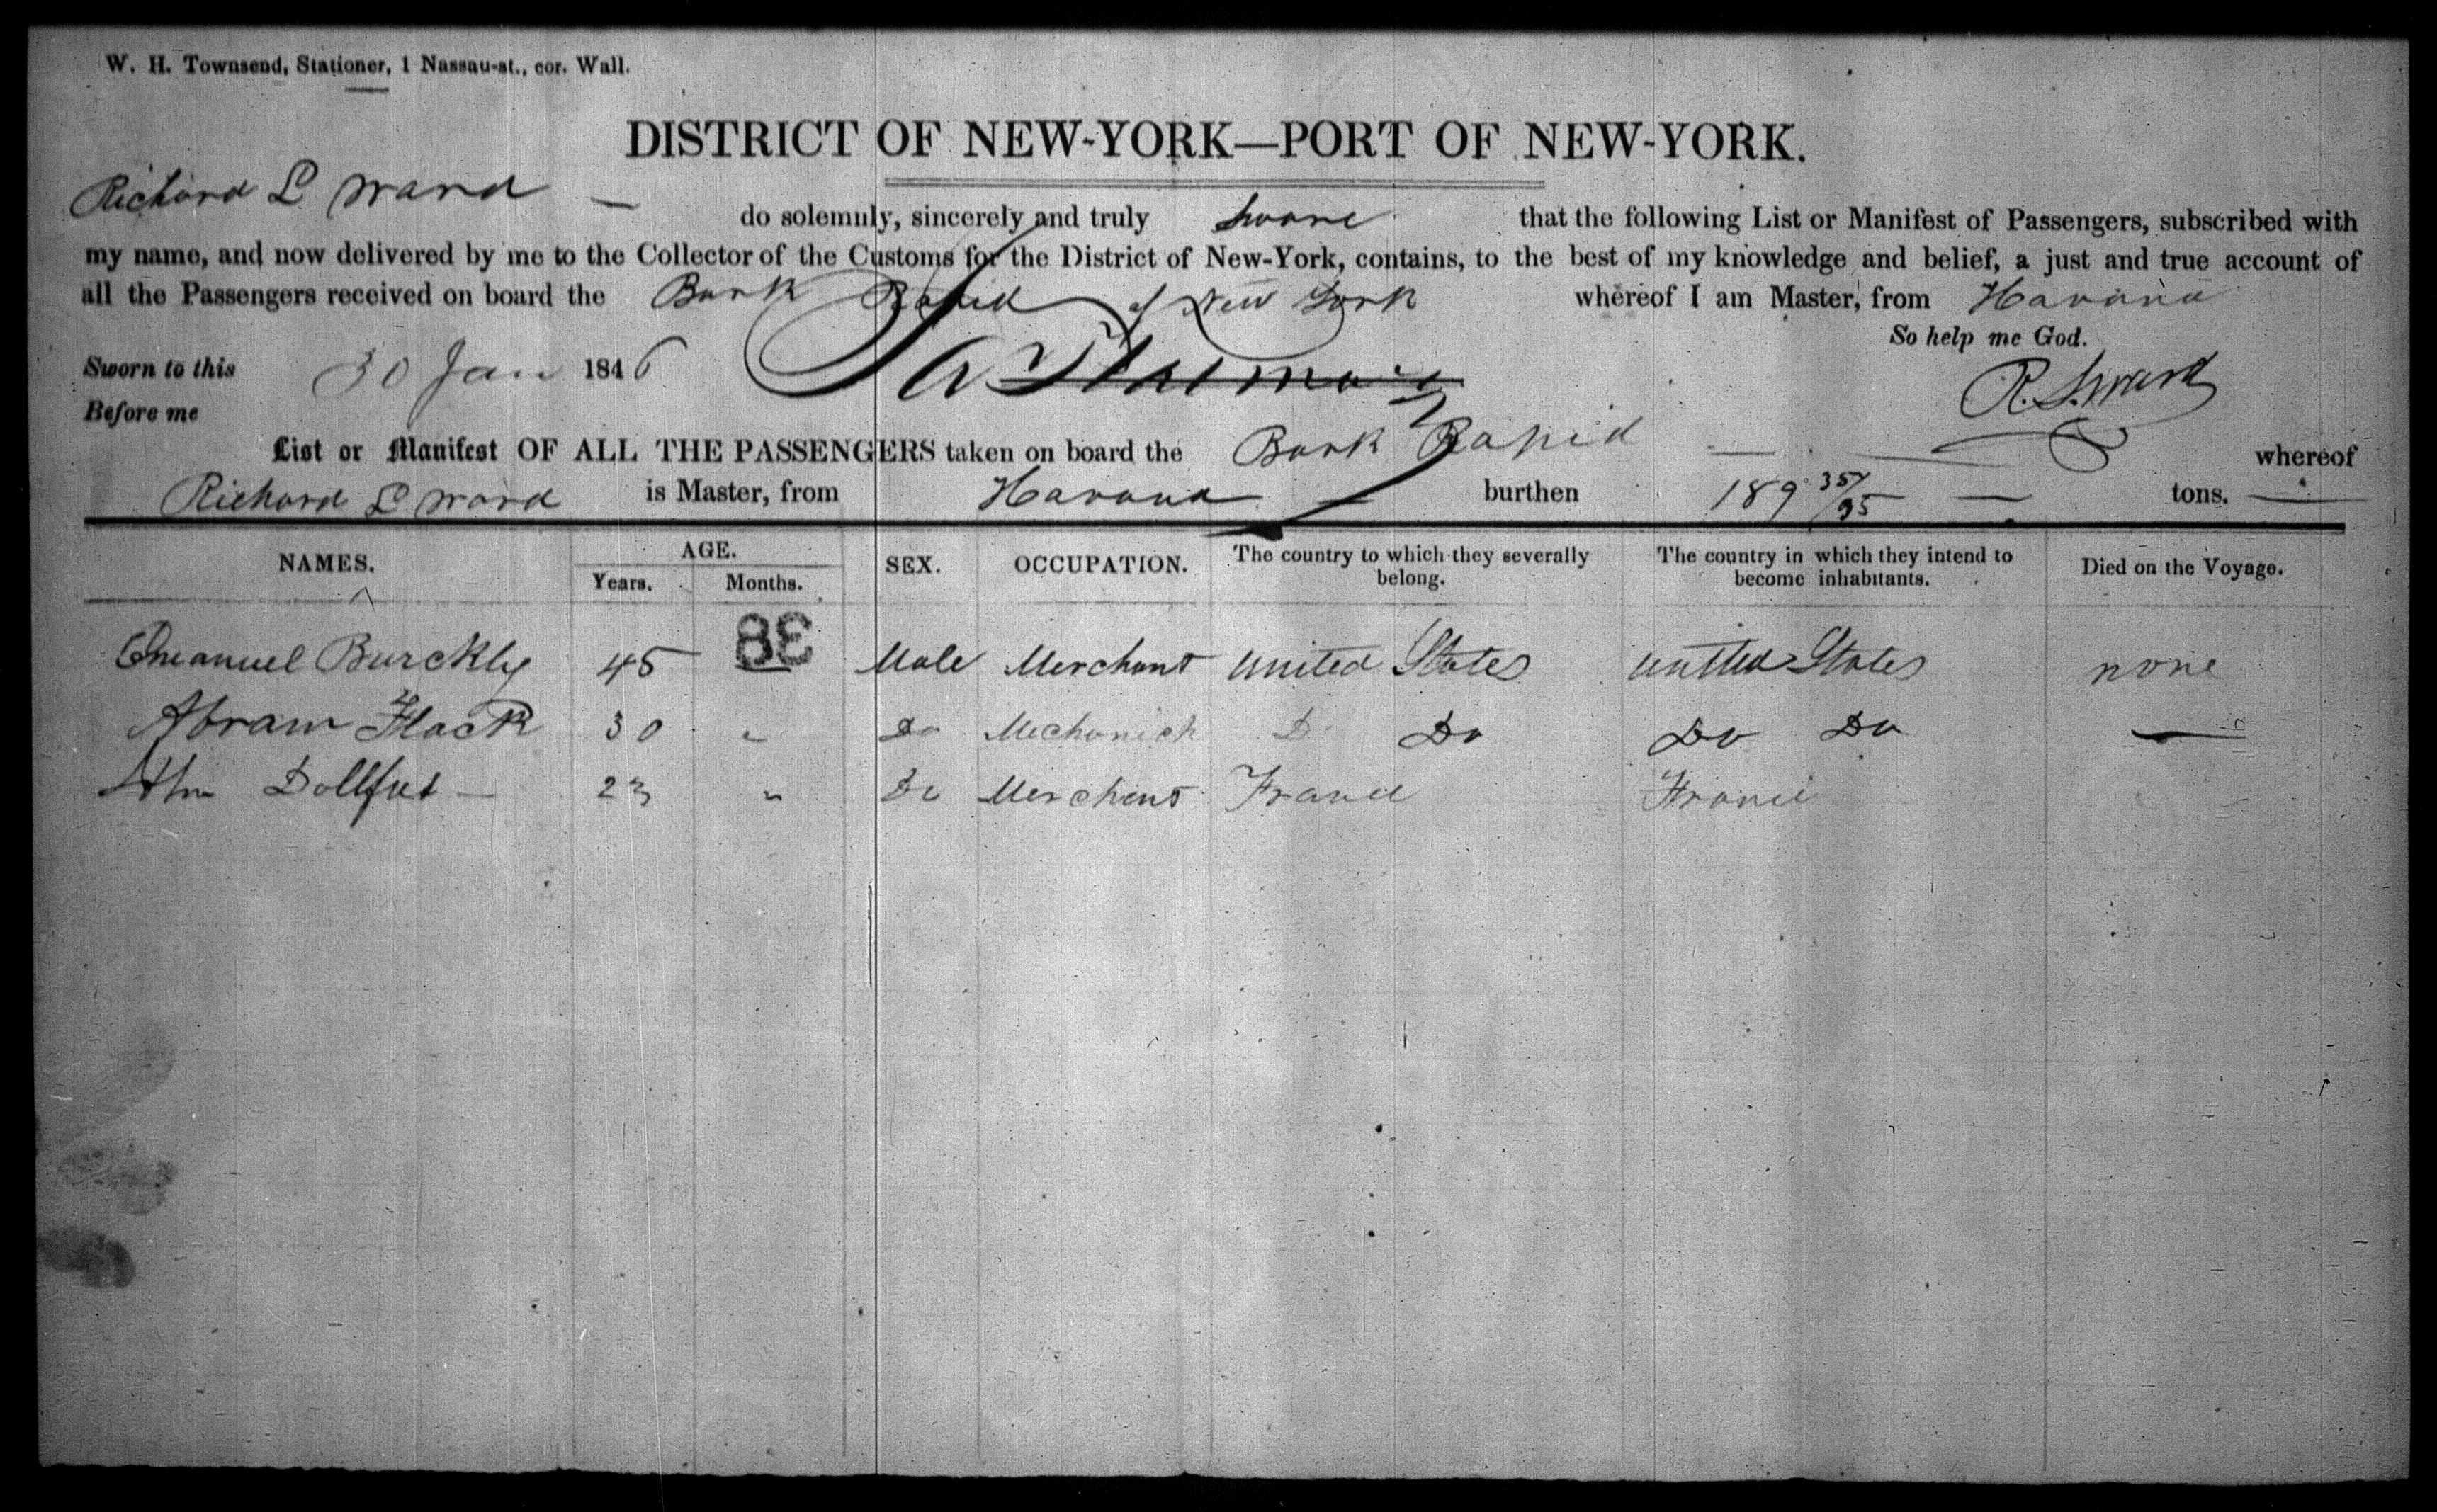 W. H. Townsend, Stationer, 1 Nassau-st., cor. Wall.
DISTRICT OF NEW-YORK—PORT OF NEW-YORK.
Richard L Ward — do solemnly, sincerely and truly swore that the following List or Manifest of Passengers, subscribed with
my name, and now delivered by me to the Collector of the Customs for the District of New-York, contains, to the best of my knowledge and belief, a just and true account of
all the Passengers received on board the Bark Rapid of New York whereof I am Master, from Havana
So help me God.
Sworn to this 30 Jan 1846
R. L. Ward
Before me
List or Manifest OF ALL THE PASSENGERS taken on board the Bark Rapid — whereof
Richard L Ward is Master, from Havana — burthen 189 35/95 — tons.
NAMES. AGE. SEX. OCCUPATION. The country to which they severally belong. The country in which they intend to become inhabitants. Died on the Voyage.
Years. Months.
38
Emanuel Burckly 45 Male Merchant United States United States none
Abram Flack 30 " Do Mechanick D Do Do Do —
Dollfus — 23 " Do Merchant France France